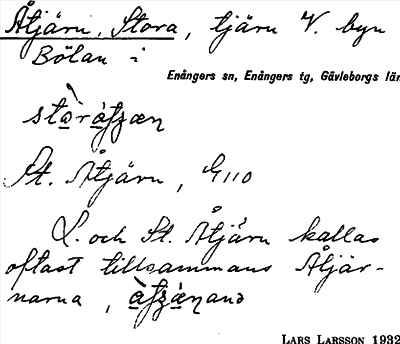 Åtjärn, Stora, tjärn V. byn
Bölan i
Enångers sn, Enångers tg, Gävleborgs län
St. Åtjärn, G110
L. och St. Åtjärn kallas
oftast tillsammans Åtjär-
narna,
LARS LARSSON 1932